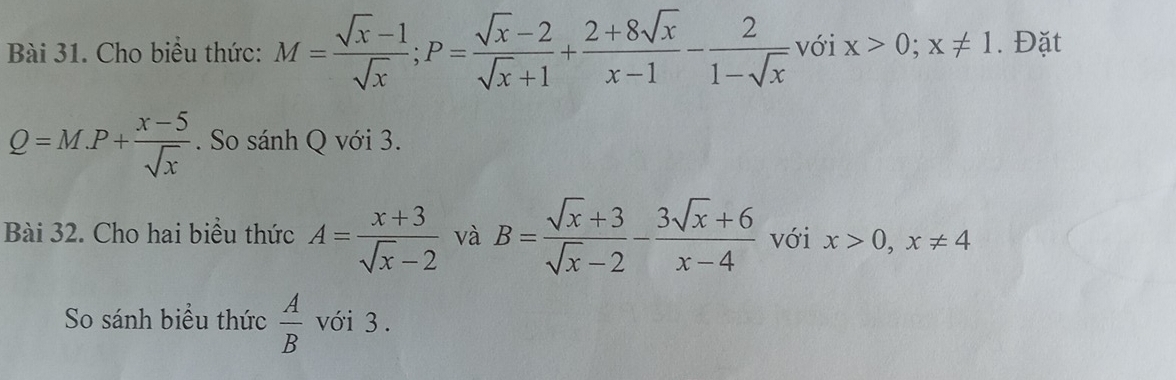 Bài 31. Cho biểu thức: $M = \frac{\sqrt{x}-1}{\sqrt{x}}; P = \frac{\sqrt{x}-2}{\sqrt{x}+1} + \frac{2+8\sqrt{x}}{x-1} - \frac{2}{1-\sqrt{x}}$ với x > 0; x ≠ 1. Đặt
$Q = M.P + \frac{x-5}{\sqrt{x}}$. So sánh Q với 3.
Bài 32. Cho hai biểu thức $A = \frac{x+3}{\sqrt{x}-2}$ và $B = \frac{\sqrt{x}+3}{\sqrt{x}-2} - \frac{3\sqrt{x}+6}{x-4}$ với $x > 0, x \neq 4$
So sánh biểu thức $\frac{A}{B}$ với 3 .